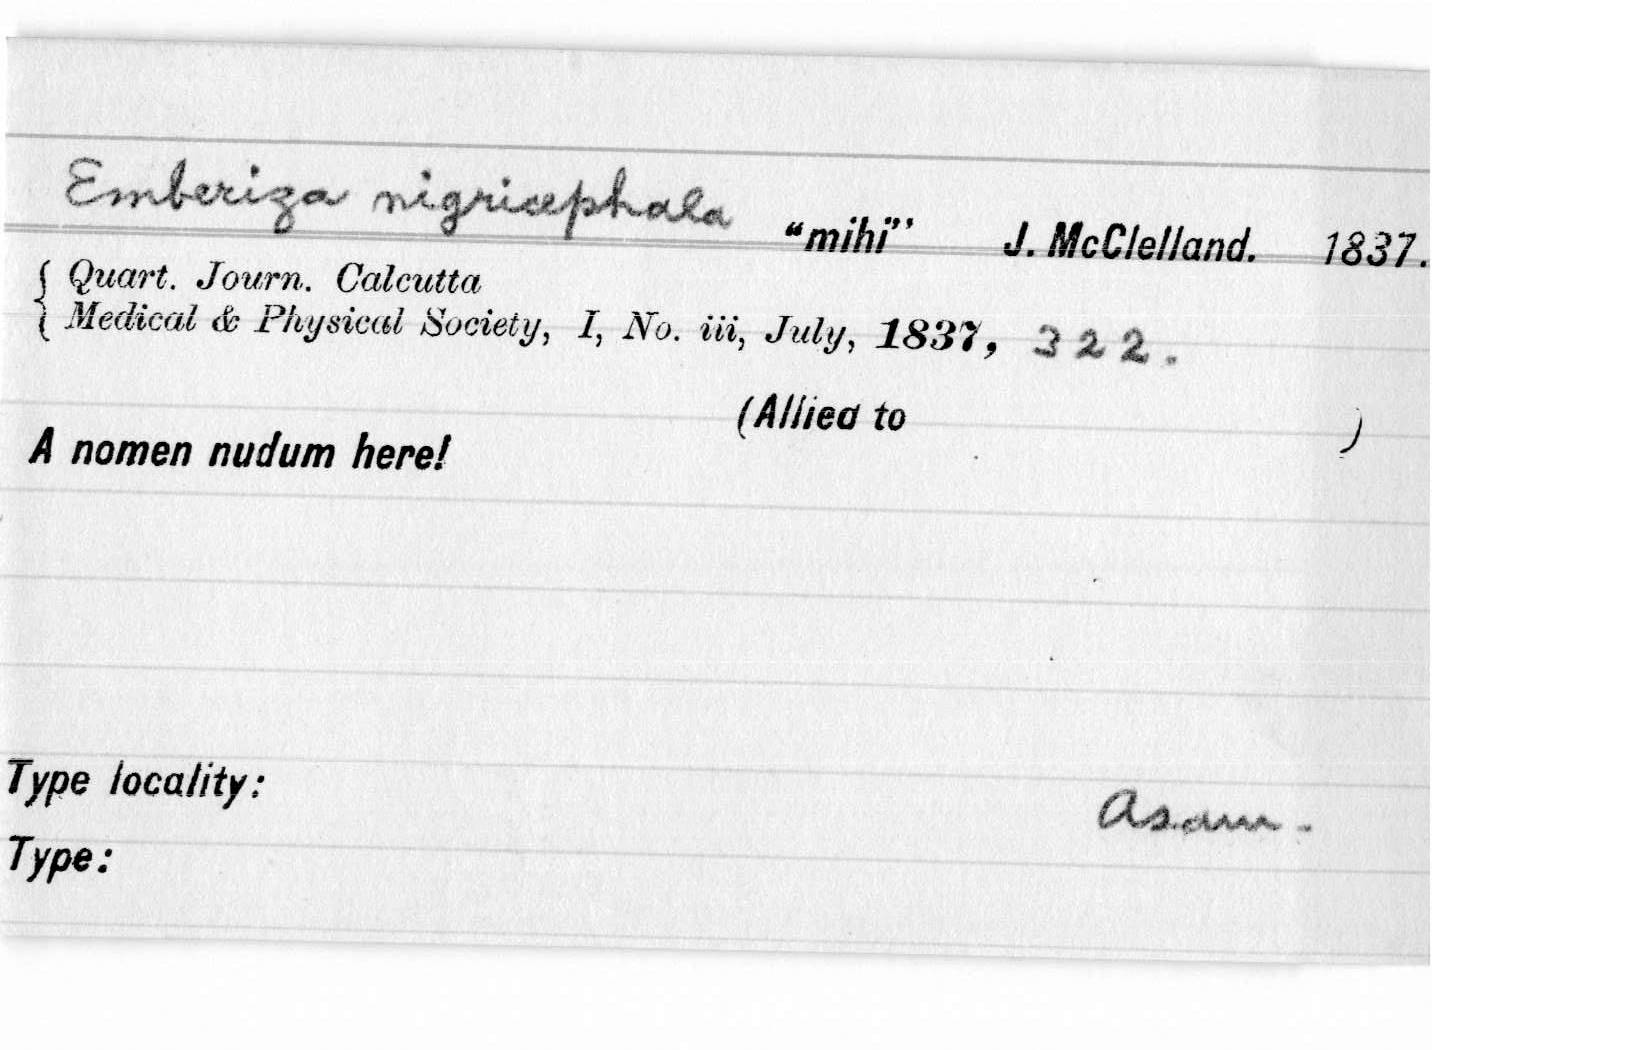 Emberiza nigricephala "mihi" J. McClelland. 1837.
{ Quart. Journ. Calcutta
Medical & Physical Society, I, No. iii, July, 1837, 322.
(Allied to )
A nomen nudum here!
Type locality: Asam.
Type: